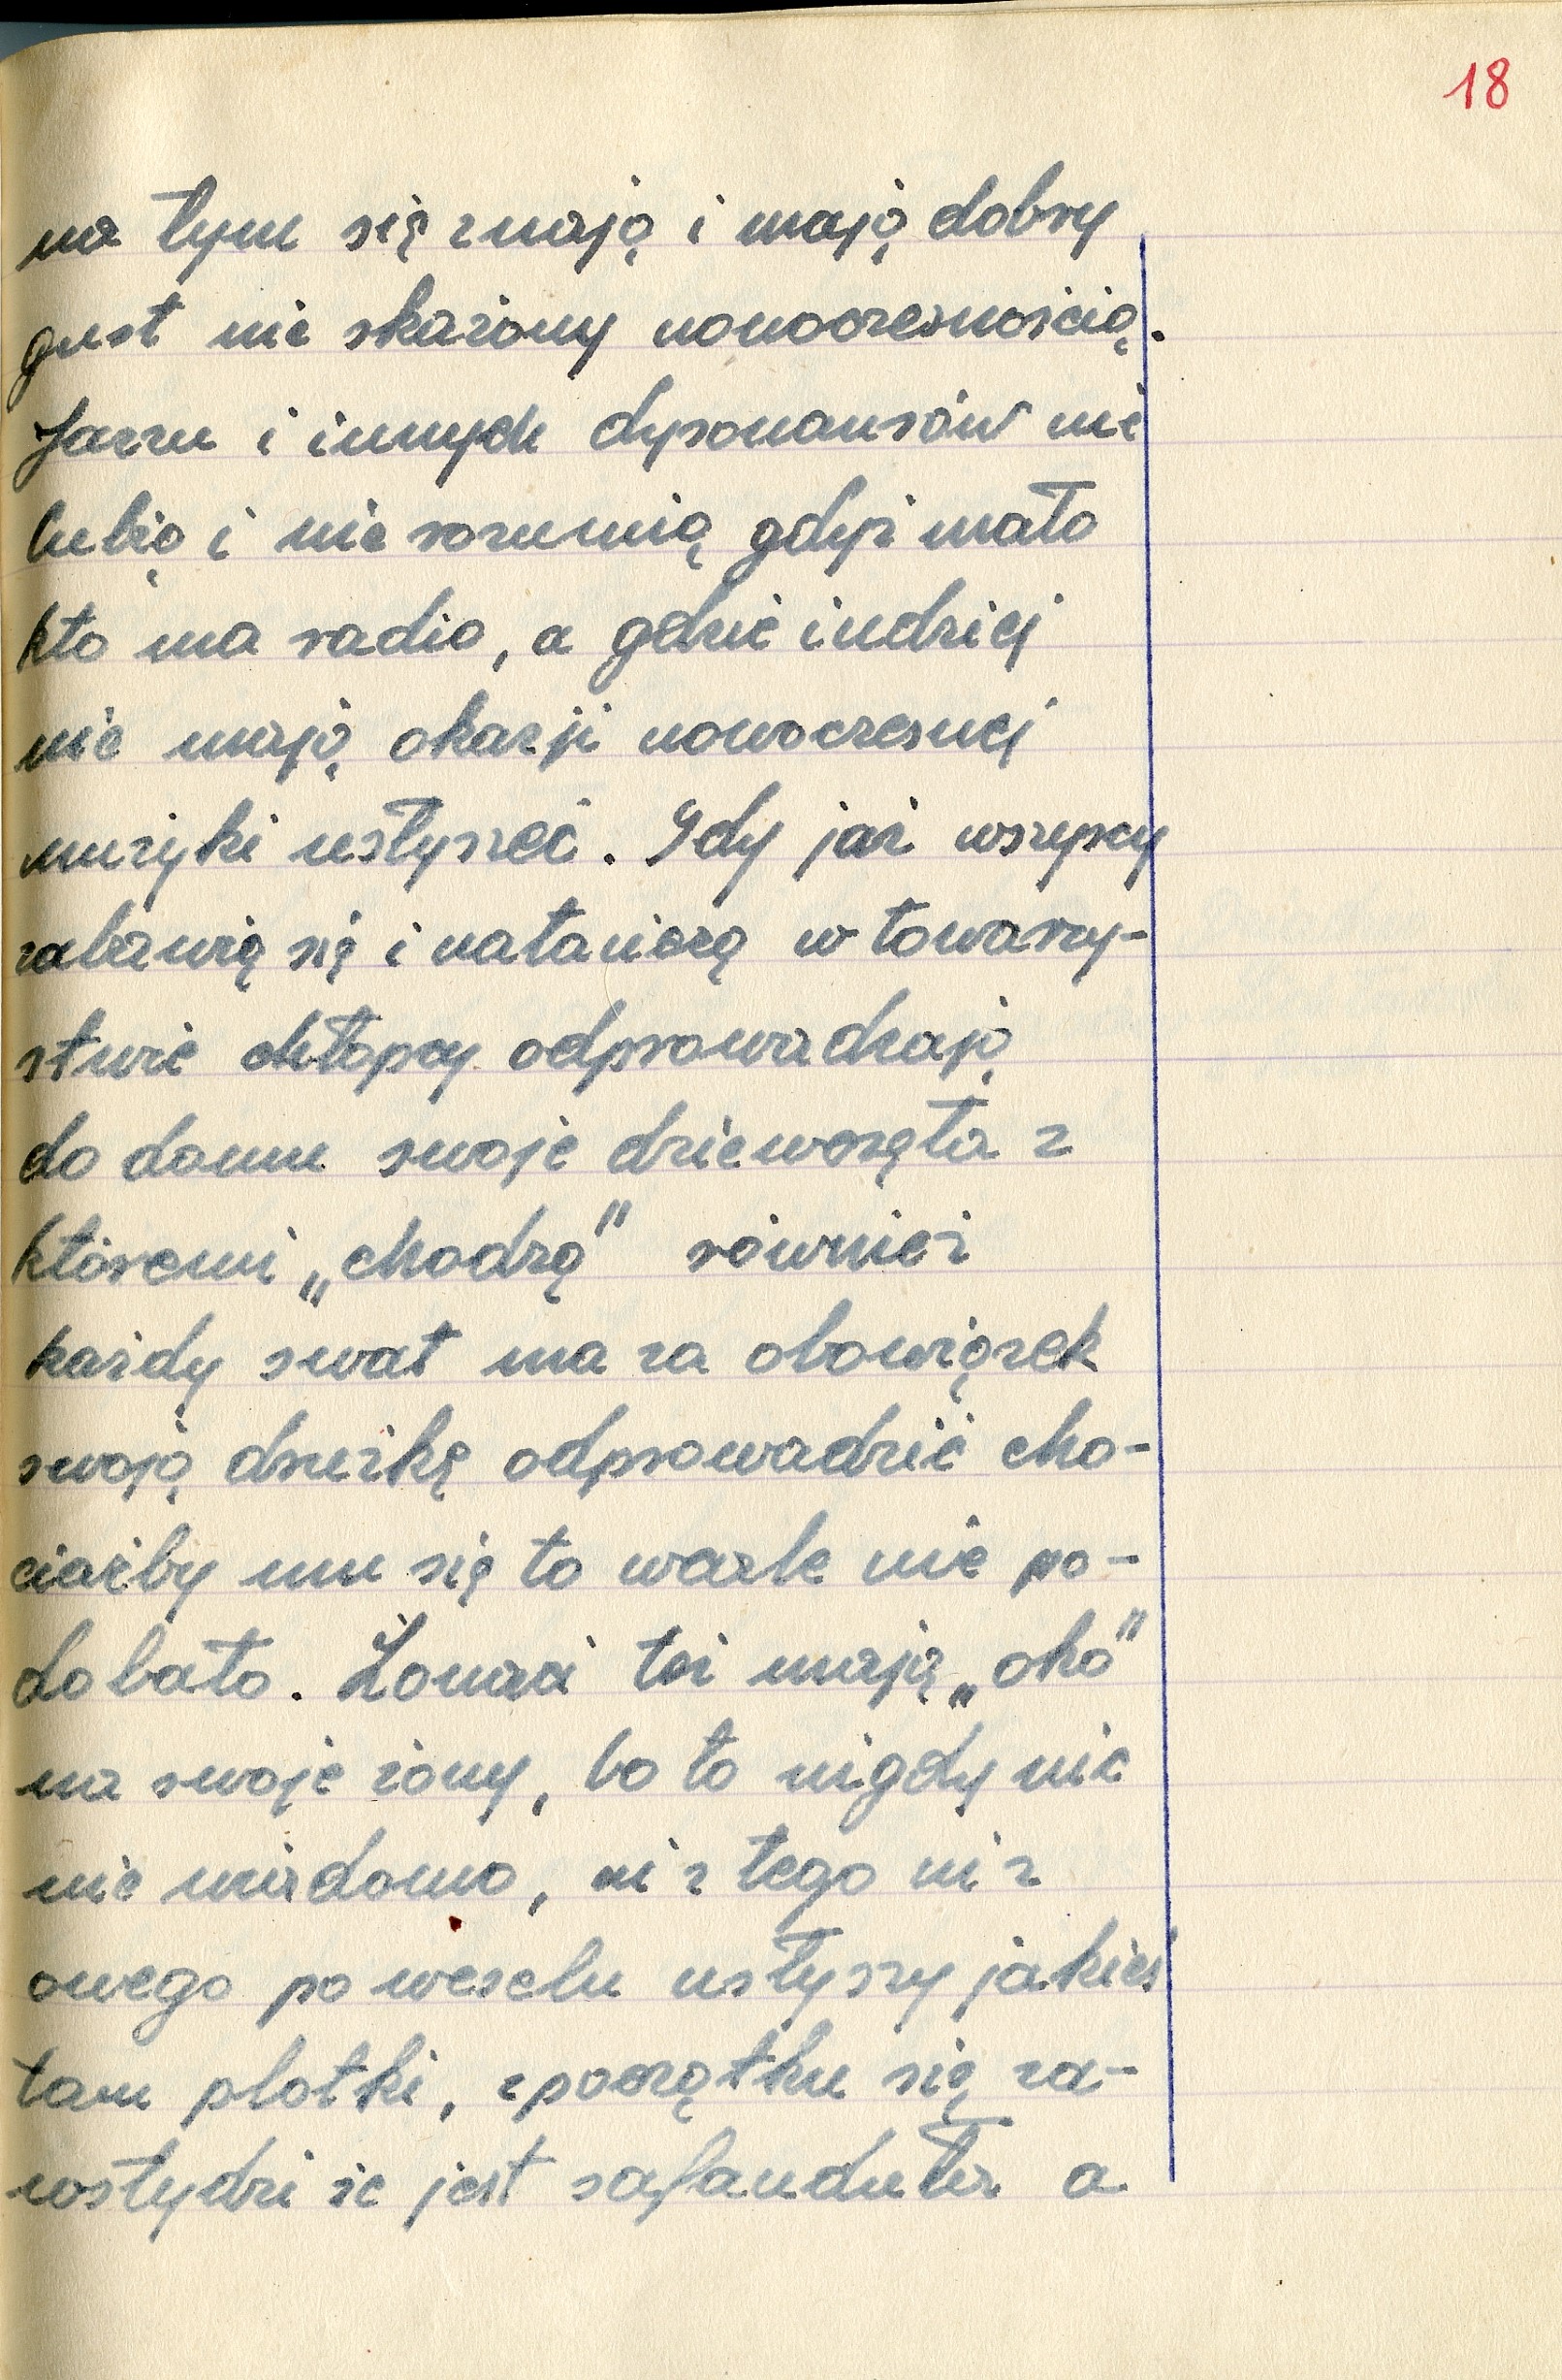 18
na tym się znają i mają dobry
gust nie skażony nowoczesnością.
Jazzu i innych dysonansów nie
lubią i nie rozumią gdyż mało
kto ma radio, a gdzie indziej
nie mają okazji nowoczesnej
muzyki usłyszeć. Gdy już wszyscy
zabawią się i natańczą w towarzy-
stwie chłopcy odprowadzają
do domu swoje dziewczęta z
któremi „chodzą" również
każdy swat ma za obowiązek
swoją drużkę odprowadzić cho-
ciażby mu się to wcale nie po-
dobało. Żonaci też mają „oko"
na swoje żony, bo to nigdy nic
nie wiadomo, ni z tego ni z
owego po weselu usłyszy jakieś
tam plotki, z początku się za-
wstydzi że jest safandułą a